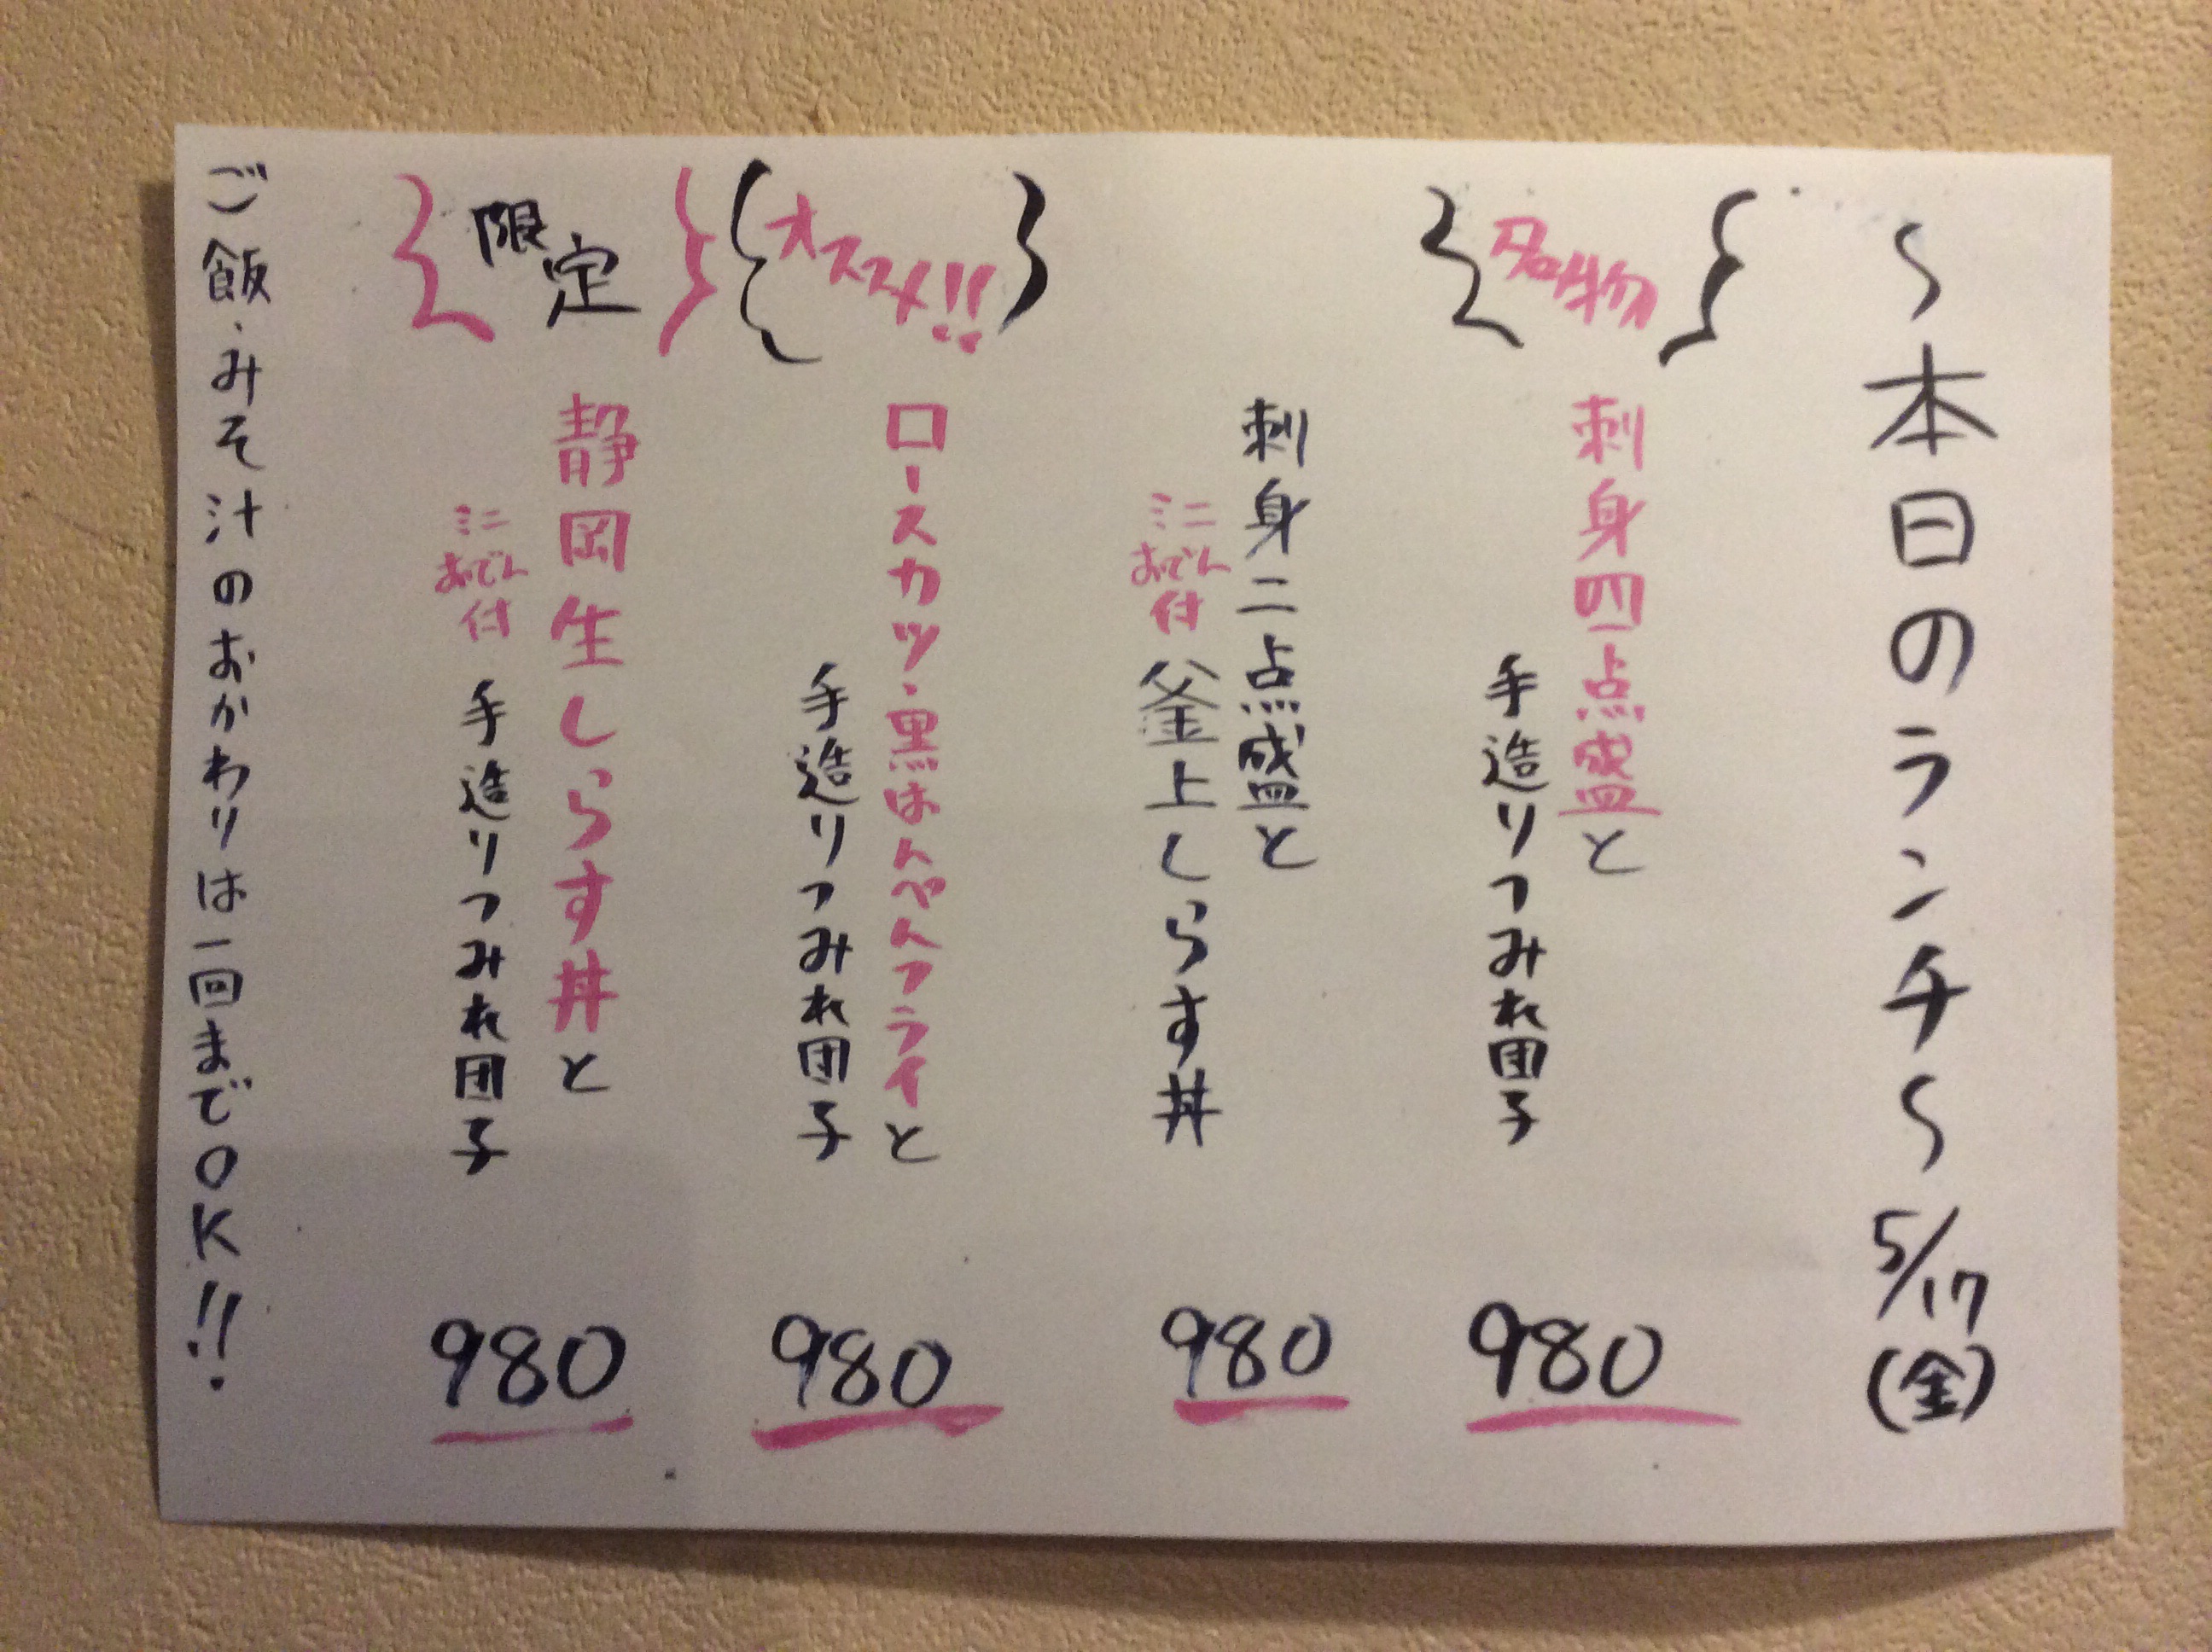 〜本日のランチ〜 5/17(金)
名物
刺身四点盛と
手造りつみれ団子
980
刺身二点盛と
ミニおでん付
釜上しらす丼
980
オススメ!!
ロースカツ・黒はんぺんフライと
手造りつみれ団子
980
限定
静岡生しらす丼と
ミニおでん付
手造りつみれ団子
980
ご飯・みそ汁のおかわりは一回までOK!!